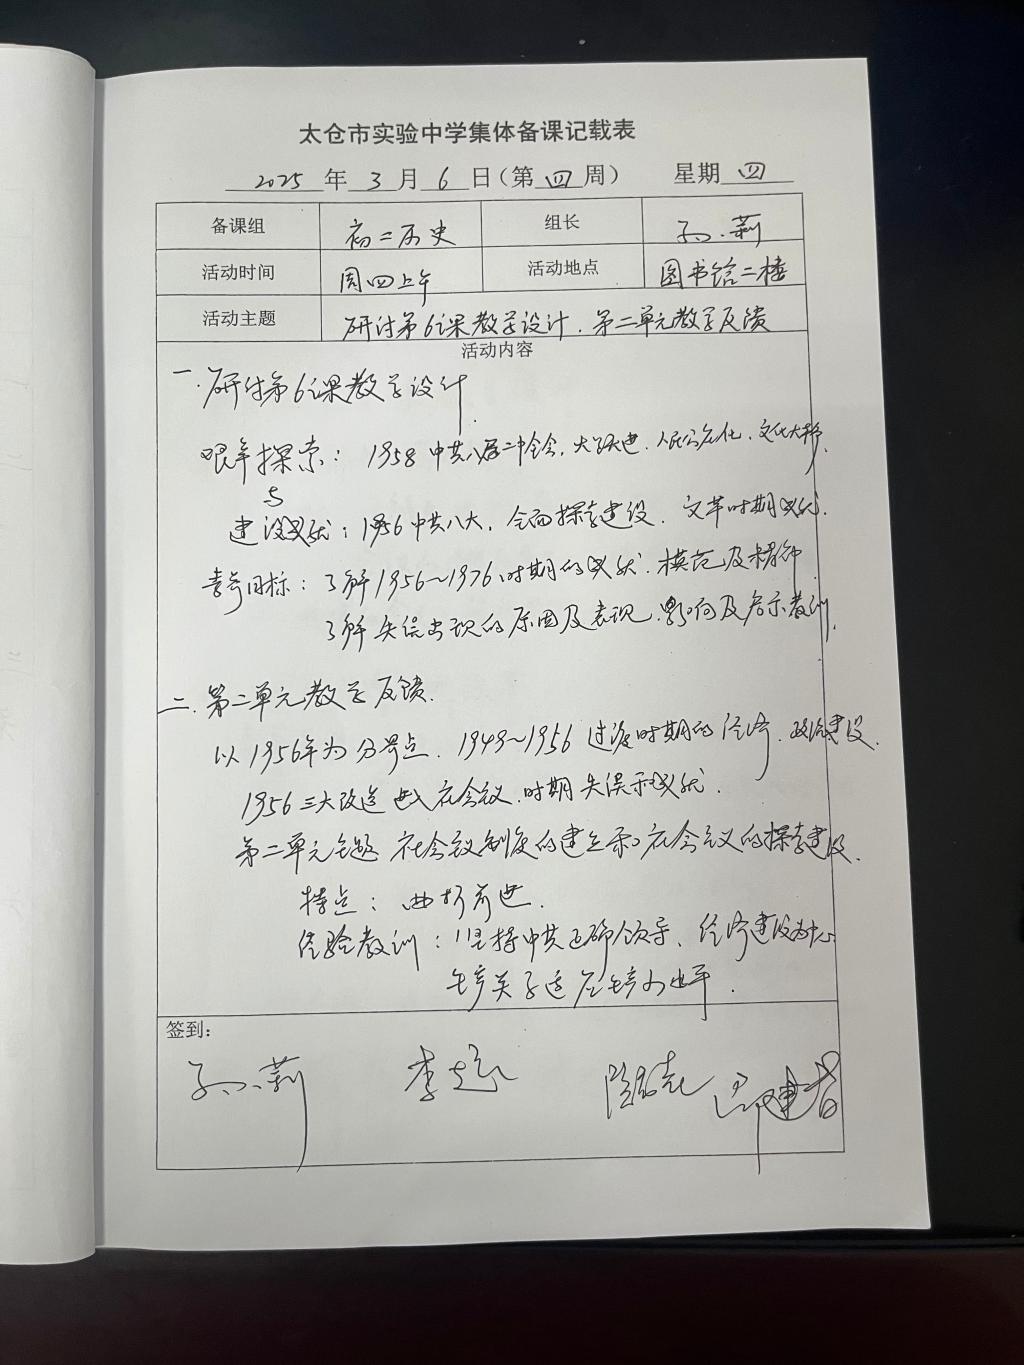 太仓市实验中学集体备课记载表
2025 年 3 月 6 日(第 四 周) 星期 四
备课组 初二历史 组长 孙莉
活动时间 周四上午 活动地点 图书馆二楼
活动主题 研讨第6课教学设计.第二单元教学反馈
活动内容
一.研讨第6课教学设计
艰辛探索:1958 中共八届二中全会,大跃进.人民公社化.文化大革命.
与
建设成就:1956中共八大,全面探索建设.文革时期成就.
素养目标:了解1956~1976时期的成就.模范及精神
了解失误出现的原因及表现.影响及启示教训.
二.第二单元教学反馈.
以1956年为分界点.1949~1956过渡时期的经济.政治建设.
1956三大改造进入社会主义.时期失误和成就.
第二单元主题 社会主义制度的建立和社会主义的探索建设.
特点:曲折前进.
经验教训:坚持中共正确领导、经济建设为中心
生产关系适应生产力水平.
签到:
孙莉 李